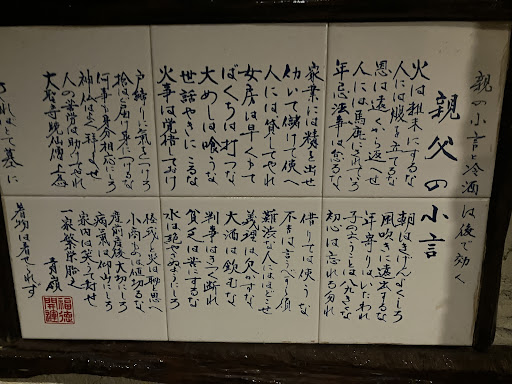 親の小言と冷酒は後で効く
親父の小言
火は粗末にするな
人には腹を立てるな
恩は遠くから返へせ
人には馬鹿にされてろ
年忌法事は怠るな
朝はきげんよくしろ
風吹きに遠出するな
年寄りはいたわれ
子の云うことは八九きくな
初心は忘れる勿れ
家業には精を出せ
働いて儲けて使へ
人には貸してやれ
女房は早くもて
ばくちは打つな
大めしは喰うな
世話やきになるな
火事は覚悟しておけ
借りては使うな
不吉は言うべからず
難渋な人にはほどこせ
義理は欠かすな
大酒は飲むな
判事はきつく断れ
貧乏は苦にするな
水は絶やさぬようにしろ
戸締りに気をつけろ
拾はば届け身につけるな
何事も身分相応にしろ
神仏はよく拝ませ
人の苦労は助けてやれ
大聖寺暁仙僧上
怪我と災は恥と思へ
小商ものは値切るな
産前産後大切にしろ
病気は仰山にしろ
家内は笑うて暮せ
一家繁栄
青嶺
福徳開運
墓に着物は着せられず